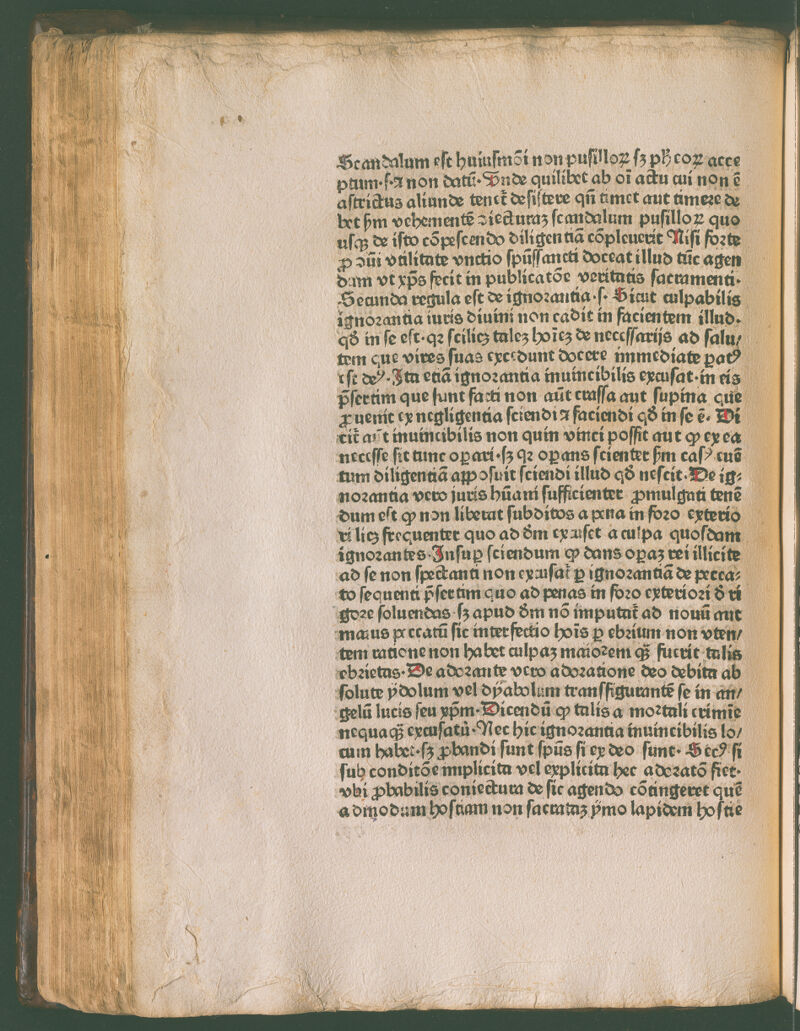 Scandalum eſt huiuſmōi non puſilloꝝ ſꝫ pħ̄coꝝ acce
ptum·ſ·ꞇ non datū·Vnde quilibet ab oī actu cui non ē
aſtrictus aliunde tenet̄ deſiſtere qn̄ timet aut timere de
bet ẜm vehementē ꝯiecturaꝫ ſcandalum puſilloꝝ quo
uſqꝫ de iſto cōpeſcendo diligentiā cōpleuerit Niſi forte
ꝓ ꝯūi vtilitate vnctio ſpūſſancti doceat illud tūc agen
dum vt xp̄s fecit in publicatōe veritatis ſacramenti·
Secunda regula eſt de ignorantia·ſ· Sicut culpabilis
ignorantia iuris diuini non cadit in facientem illud·
qđ in ſe eſt·qꝛ ſcilicꝫ taleꝫ hoīeꝫ de neceſſarijs ad ſalu/
tem que vires ſuas excedunt docere immediate ꝑatꝰ
eſt deꝰ·Ita etiā ignorantia inuincibilis excuſat·in eis
p̄ſertim que ſunt facti non aūt craſſa aut ſupina que
ꝓuenit ex negligentia ſciendi ꞇ faciendi qđ in ſe ē· Di
cit̄ aūt inuincibilis non quin vinci poſſit aut ꝙ ex ea
neceſſe ſit tunc oꝑari·ſꝫ qꝛ oꝑans ſcienter ẜm caſꝰ euē
tum diligentiā appoſuit ſciendi illud qđ neſcit·De ig⸗
norantia vero juris hūani ſufficienter ꝓmulgati tenē
dum eſt ꝙ non liberat ſubditos a pena in foro exterio
ri licꝫ frequenter quo ad dm̄ excuſet a culpa quoſdam
ignorantes·Inſuꝑ ſciendum ꝙ dans oꝑaꝫ rei illicite
ad ſe non ſpectanti non excuſat̄ ꝑ ignorantiā de pecca⸗
to ſequenti p̄ſertim quo ad penas in foro exteriori đ ri
gore ſoluendas·ſꝫ apud dm̄ nō imputat̄ ad nouū aut
maius peccatū ſic interfectio hoīs ꝑ ebrium non vten/
tem ratione non habet culpaꝫ maiorem qꝫ̄ fuerit talis
ebrietas·De adorante vero adoratione deo debita ab
ſolute ẏdolum vel dẏabolum tranſfigurantē ſe in an/
gelū lucis ſeu xp̄m·Dicendū ꝙ talis a mortali crimīe
nequaqꝫ̄ excuſatū·Nec hic ignorantia inuincibilis lo/
cum habet·ſꝫ ꝓbandi ſunt ſpūs ſi ex deo ſunt· Secꝰ ſi
ſub conditōe implicita vel explicita hec adoratō fiet·
vbi ꝓbabilis coniectura de ſic agendo cōtingeret quē
admodum hoſtiam non ſacrataꝫ ẏmo lapidem hoſtie